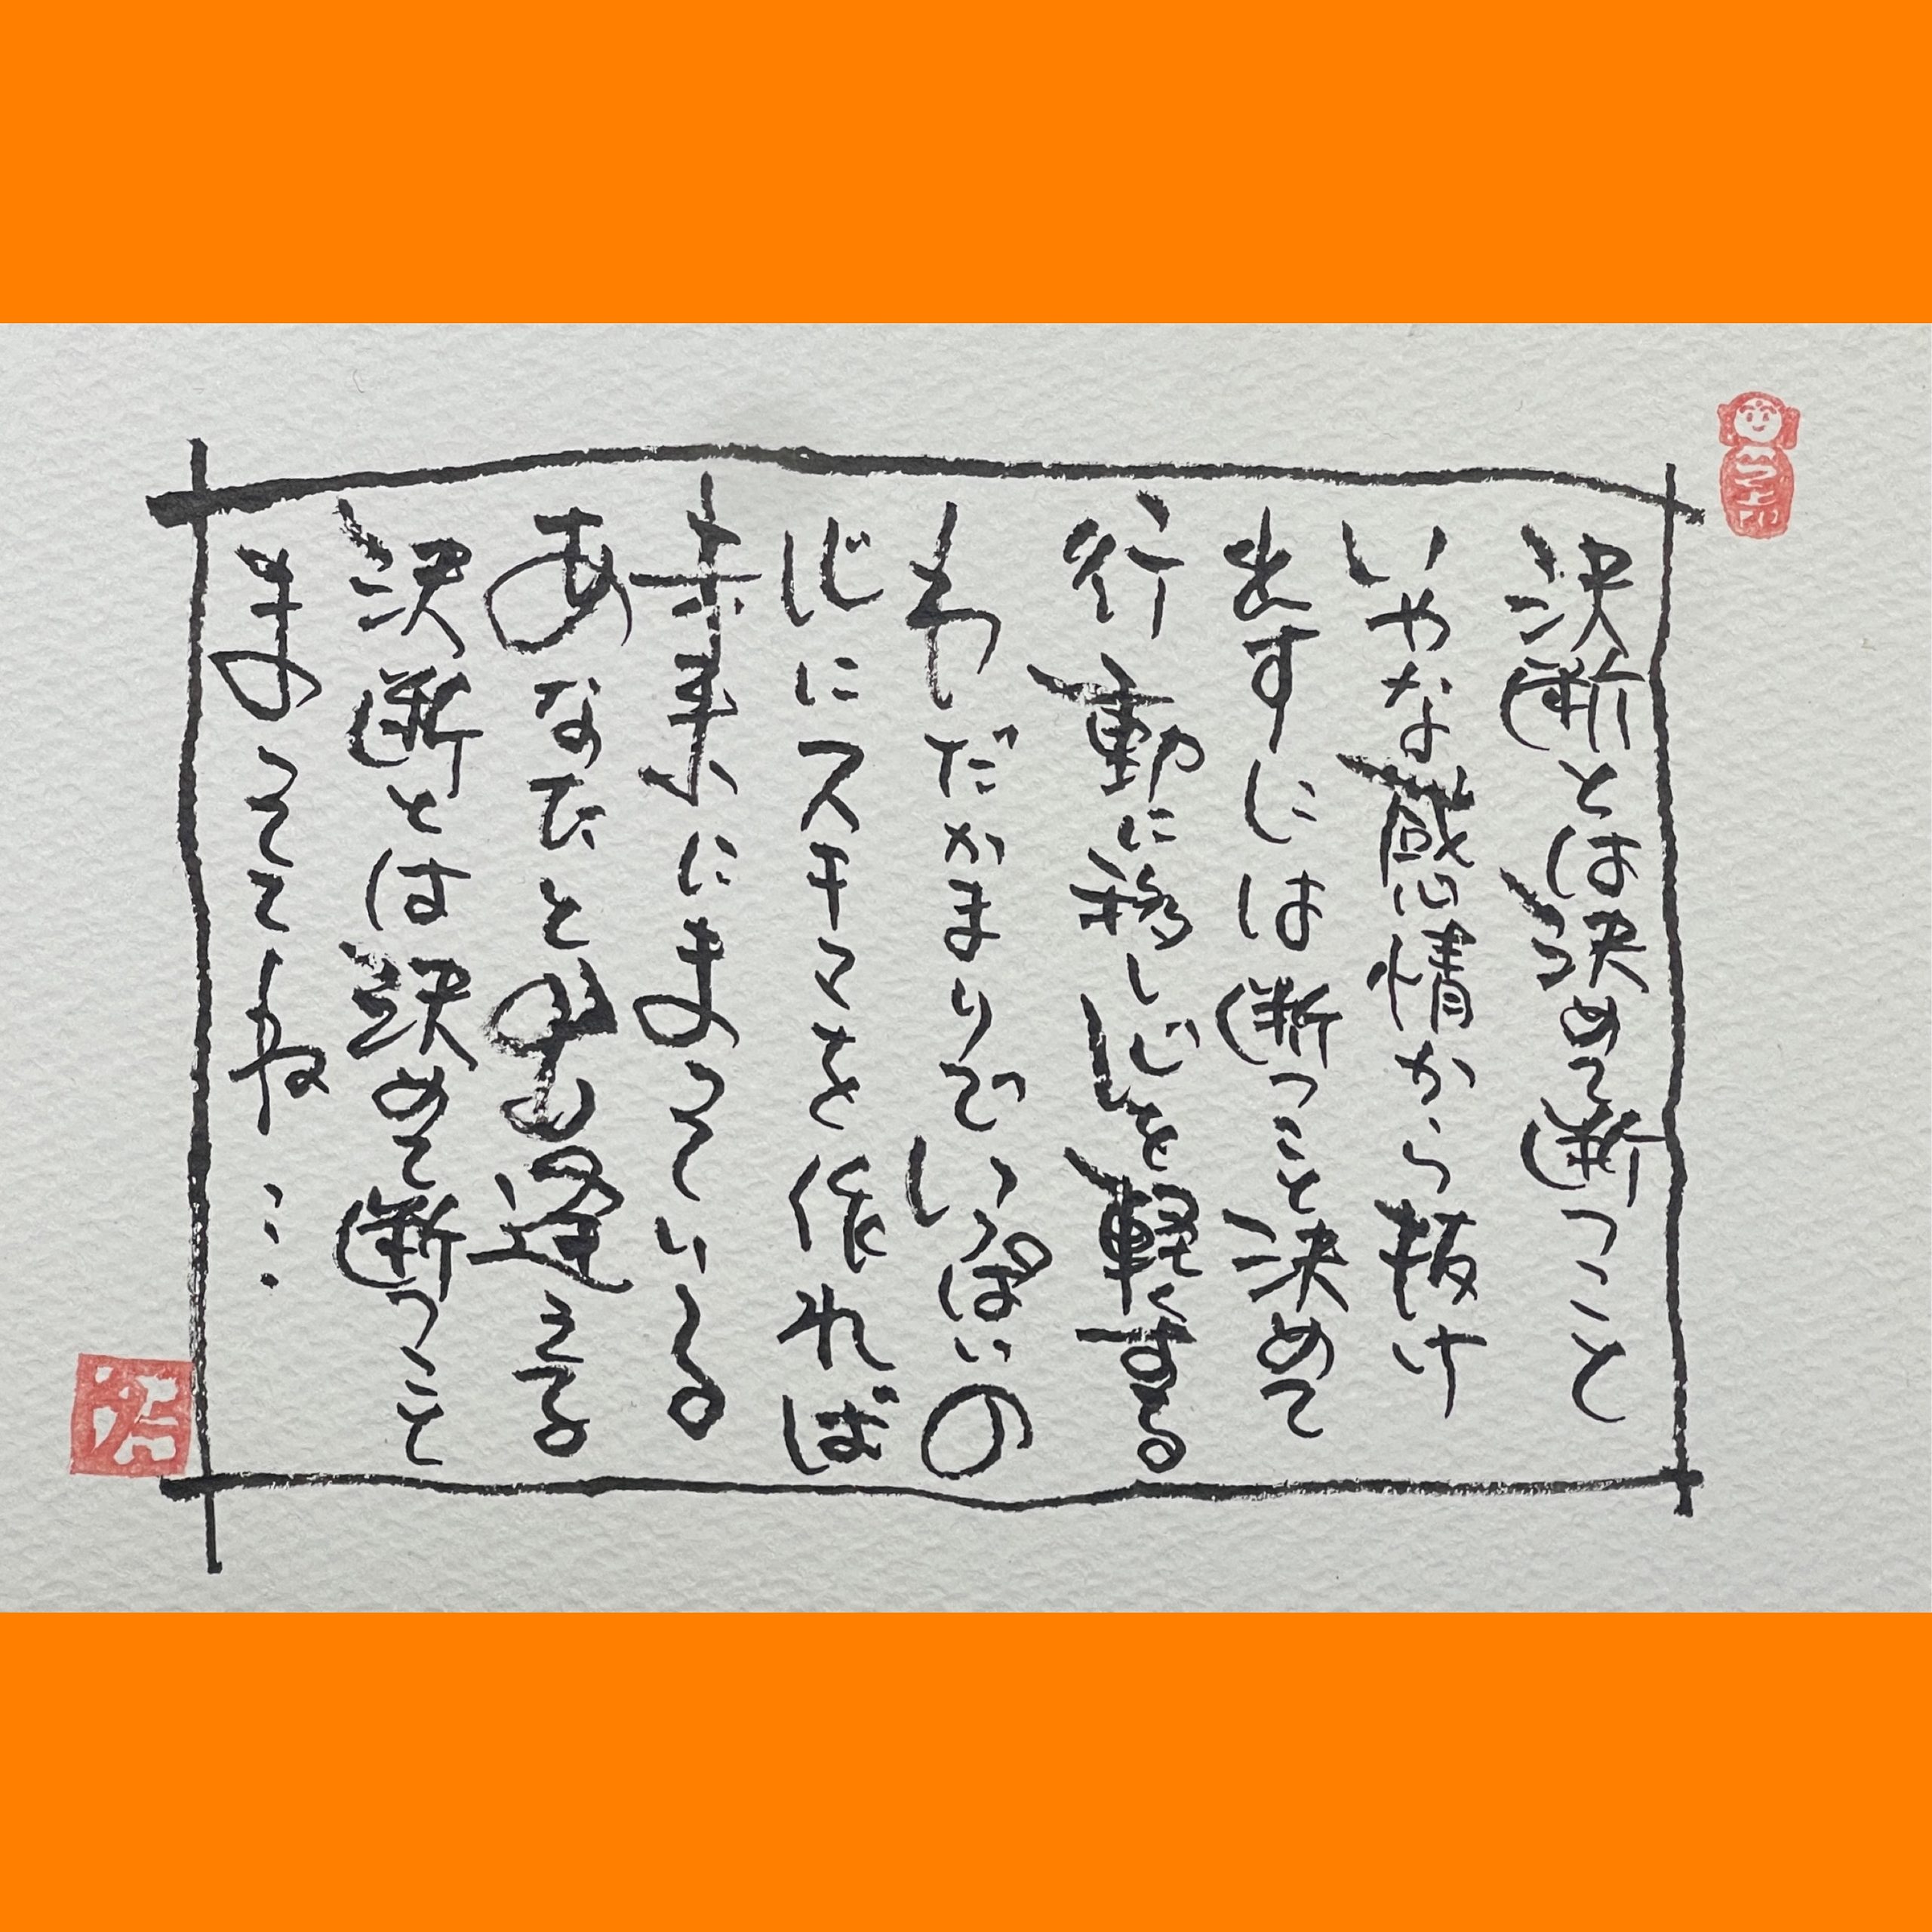 決断とは決めて断つこと
いやな感情から抜け
出すには断つこと決めて
行動に移し心を軽くする
わだかまりでいっぱいの
心にスキマを作れば
未来にまっている
あなたとも逢えてる
決断とは決めて断つこと
まっててね…